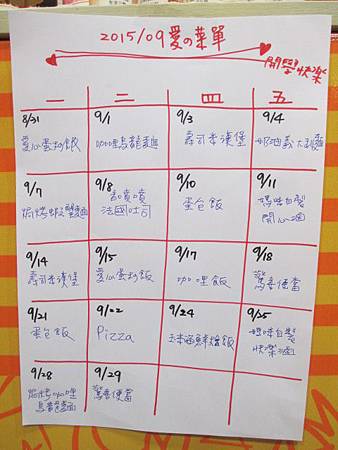 2015/09 愛の菜單
開學快樂
一 二 四 五
8/31 9/1 9/3 9/4
愛心蛋炒飯 咖哩烏龍麵 壽司米漢堡 奶油義大利麵
9/7 9/8 9/10 9/11
焗烤蝦蟹麵 甜噴噴 蛋包飯 媽咪自製
法國吐司 開心
9/14 9/15 9/17 9/18
壽司米漢堡 愛心蛋炒飯 咖哩飯 驚喜便當
9/21 9/22 9/24 9/25
蛋包飯 Pizza 玉米鮪魚燉飯 媽咪自製
快樂
9/28 9/29
焗烤咖哩 驚喜便當
烏龍麵